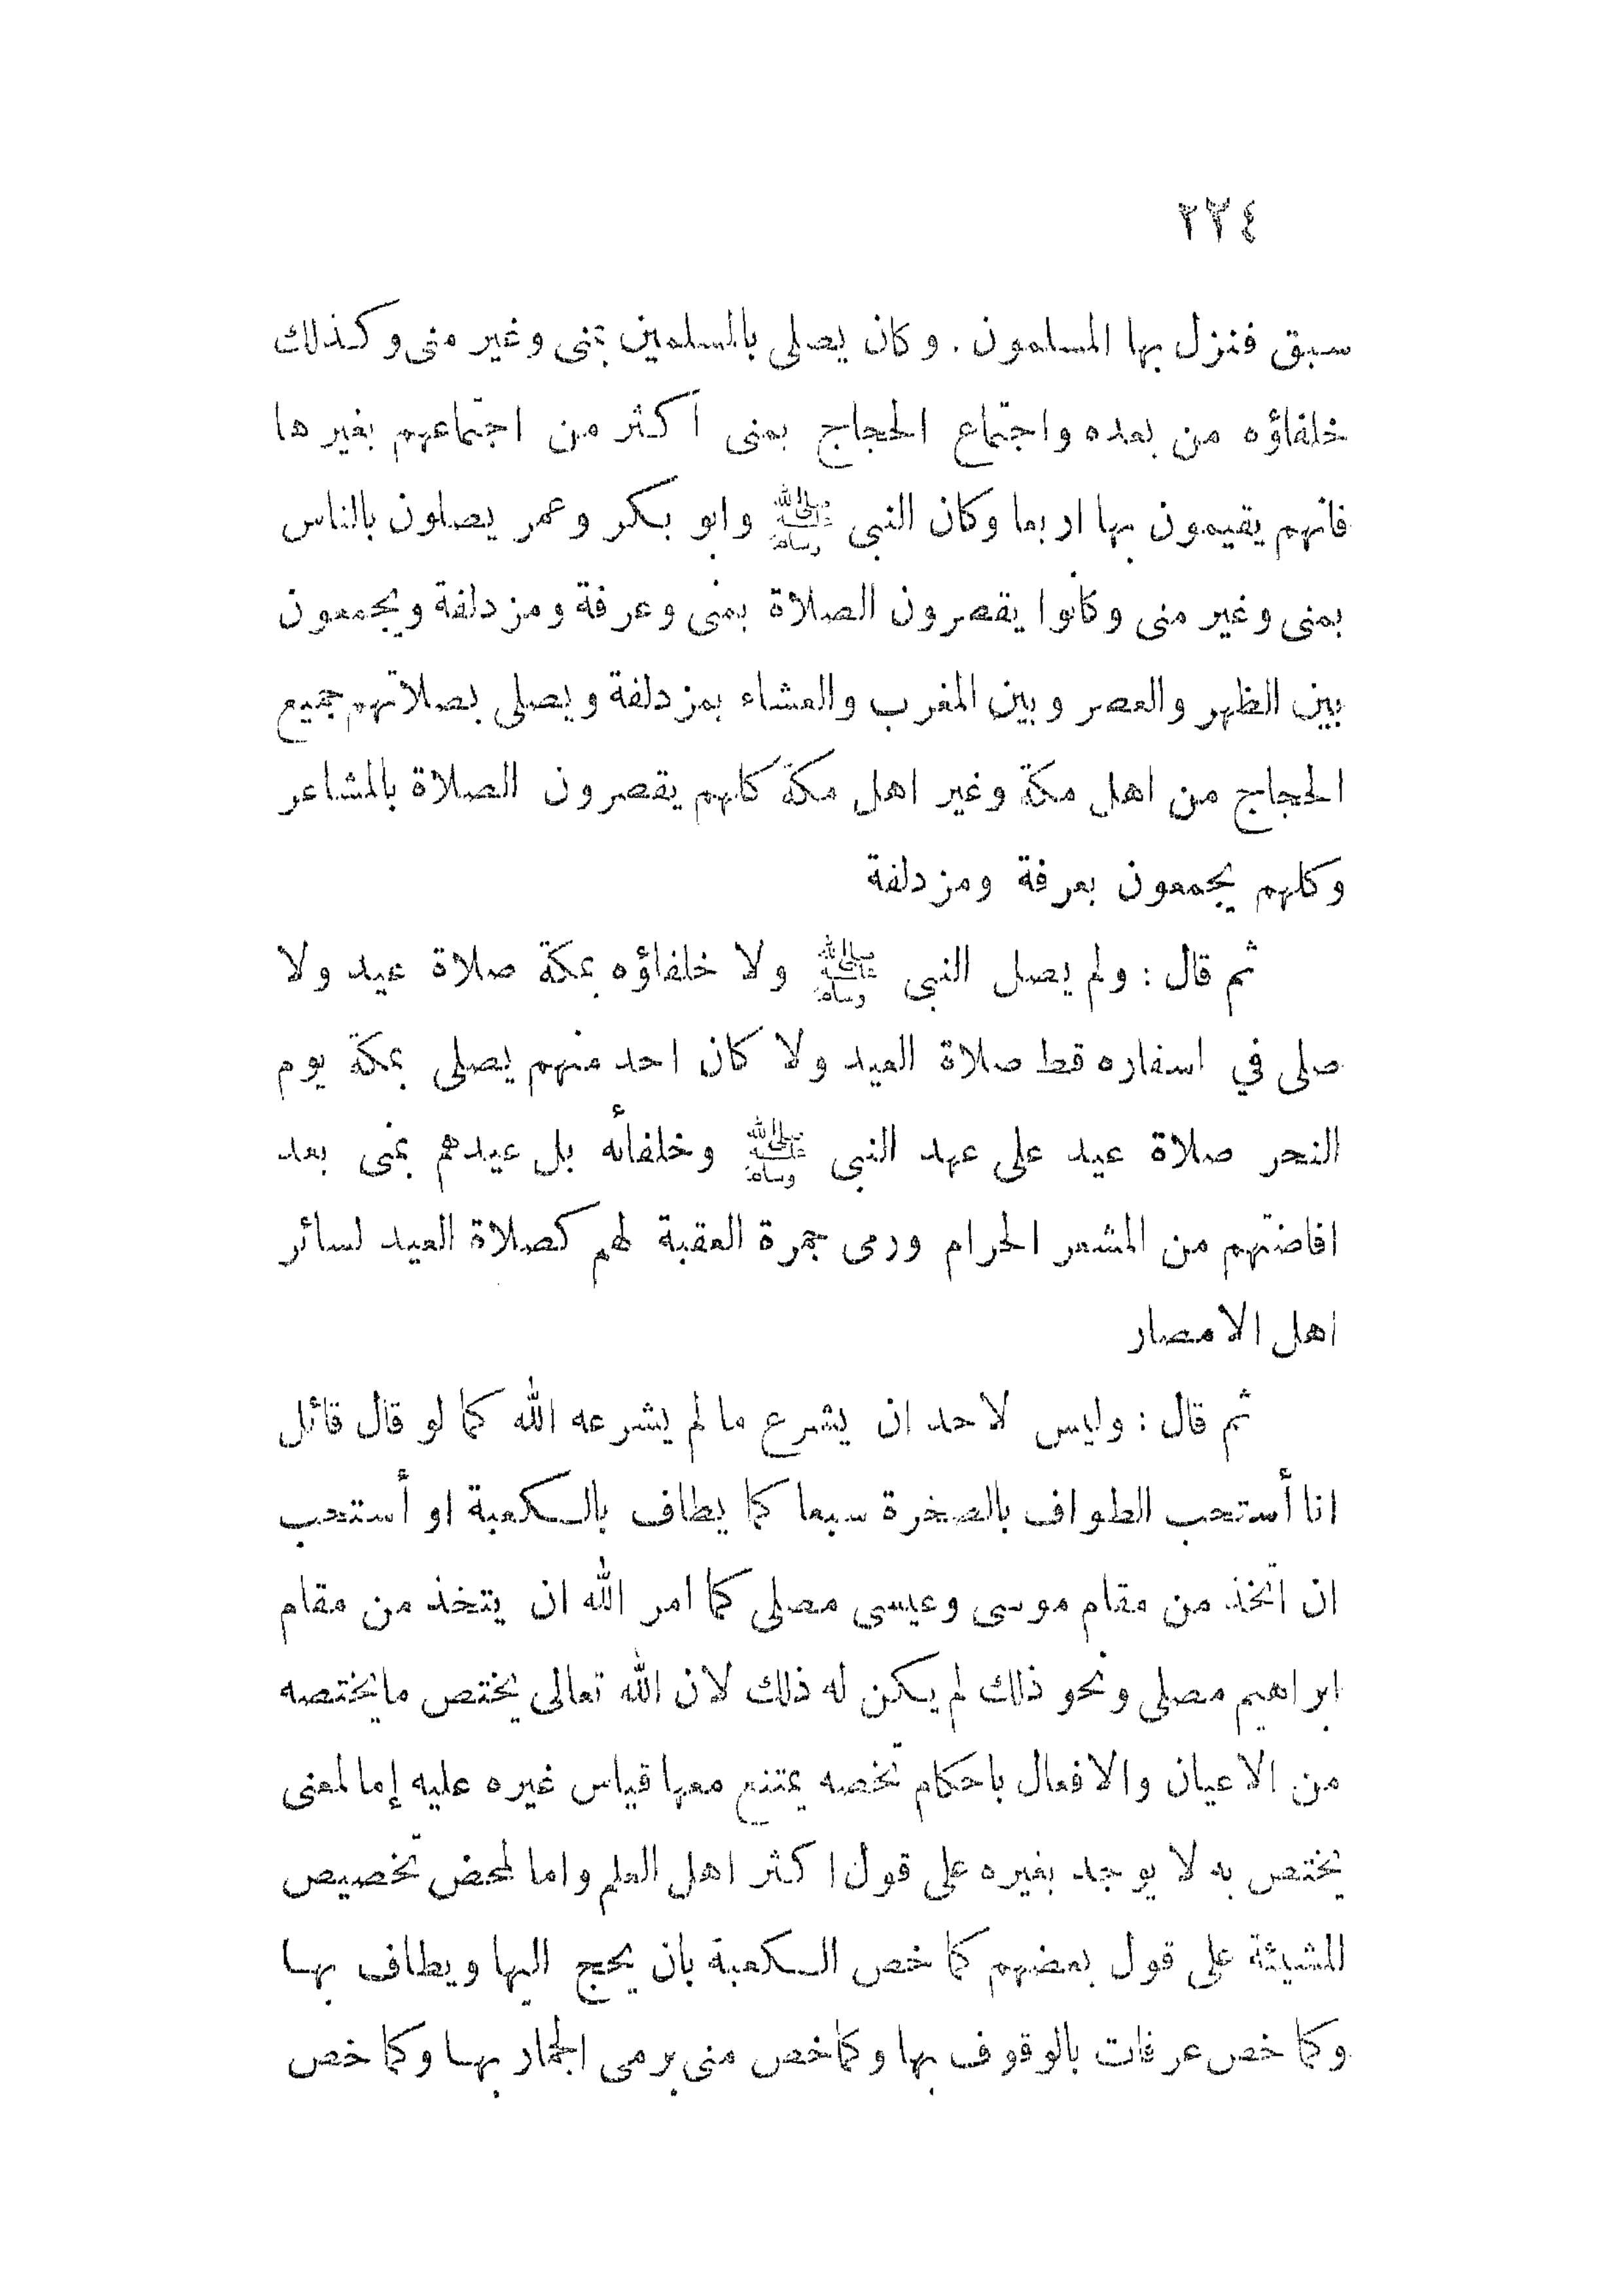 ٢٣٤
سبق فنزل بها المسلمون . وكان يصلى بالمسلمين بمنى وغير منى وكذلك
خلفاؤه من بعده واجتماع الحجاج بمنى اكثر من اجتماعهم بغيرها
فانهم يقيمون بها اربعا وكان النبى ﷺ وابو بكر وعمر يصلون بالناس
بمنى وغير منى وكانوا يقصرون الصلاة بمنى وعرفة ومزدلفة ويجمعون
بين الظهر والعصر وبين المغرب والعشاء بمزدلفة ويصلى بصلاتهم جميع
الحجاج من اهل مكة وغير اهل مكة كلهم يقصرون الصلاة بالمشاعر
وكلهم يجمعون بعرفة ومزدلفة
ثم قال : ولم يصل النبى ﷺ ولا خلفاؤه بمكة صلاة عيد ولا
صلى في اسفاره قط صلاة العيد ولا كان احد منهم يصلى بمكة يوم
النحر صلاة عيد على عهد النبى ﷺ وخلفأئه بل عيدهم بمنى بعد
افاضتهم من المشعر الحرام ورمى جمرة العقبة لهم كصلاة العيد لسائر
اهل الامصار
ثم قال : وليس لاحد ان يشرع ما لم يشرعه الله كما لو قال قائل
انا أستحب الطواف بالصخرة سبعا كما يطاف بالكعبة او أستحب
ان اتخذ من مقام موسى وعيسى مصلى كما امر الله ان يتخذ من مقام
ابراهيم مصلى ونحو ذلك لم يكن له ذلك لان الله تعالى يختص مايختصه
من الاعيان والافعال باحكام تخصه يمتنع معها قياس غيره عليه إما لمعنى
يختص به لا يوجد بغيره على قول اكثر اهل العلم واما لمحض تخصيص
المشيئة على قول بعضهم كما خص الكعبة بان يحج اليها ويطاف بها
وكما خص عرفات بالوقوف بها وكما خص منى برمى الجمار بها وكما خص